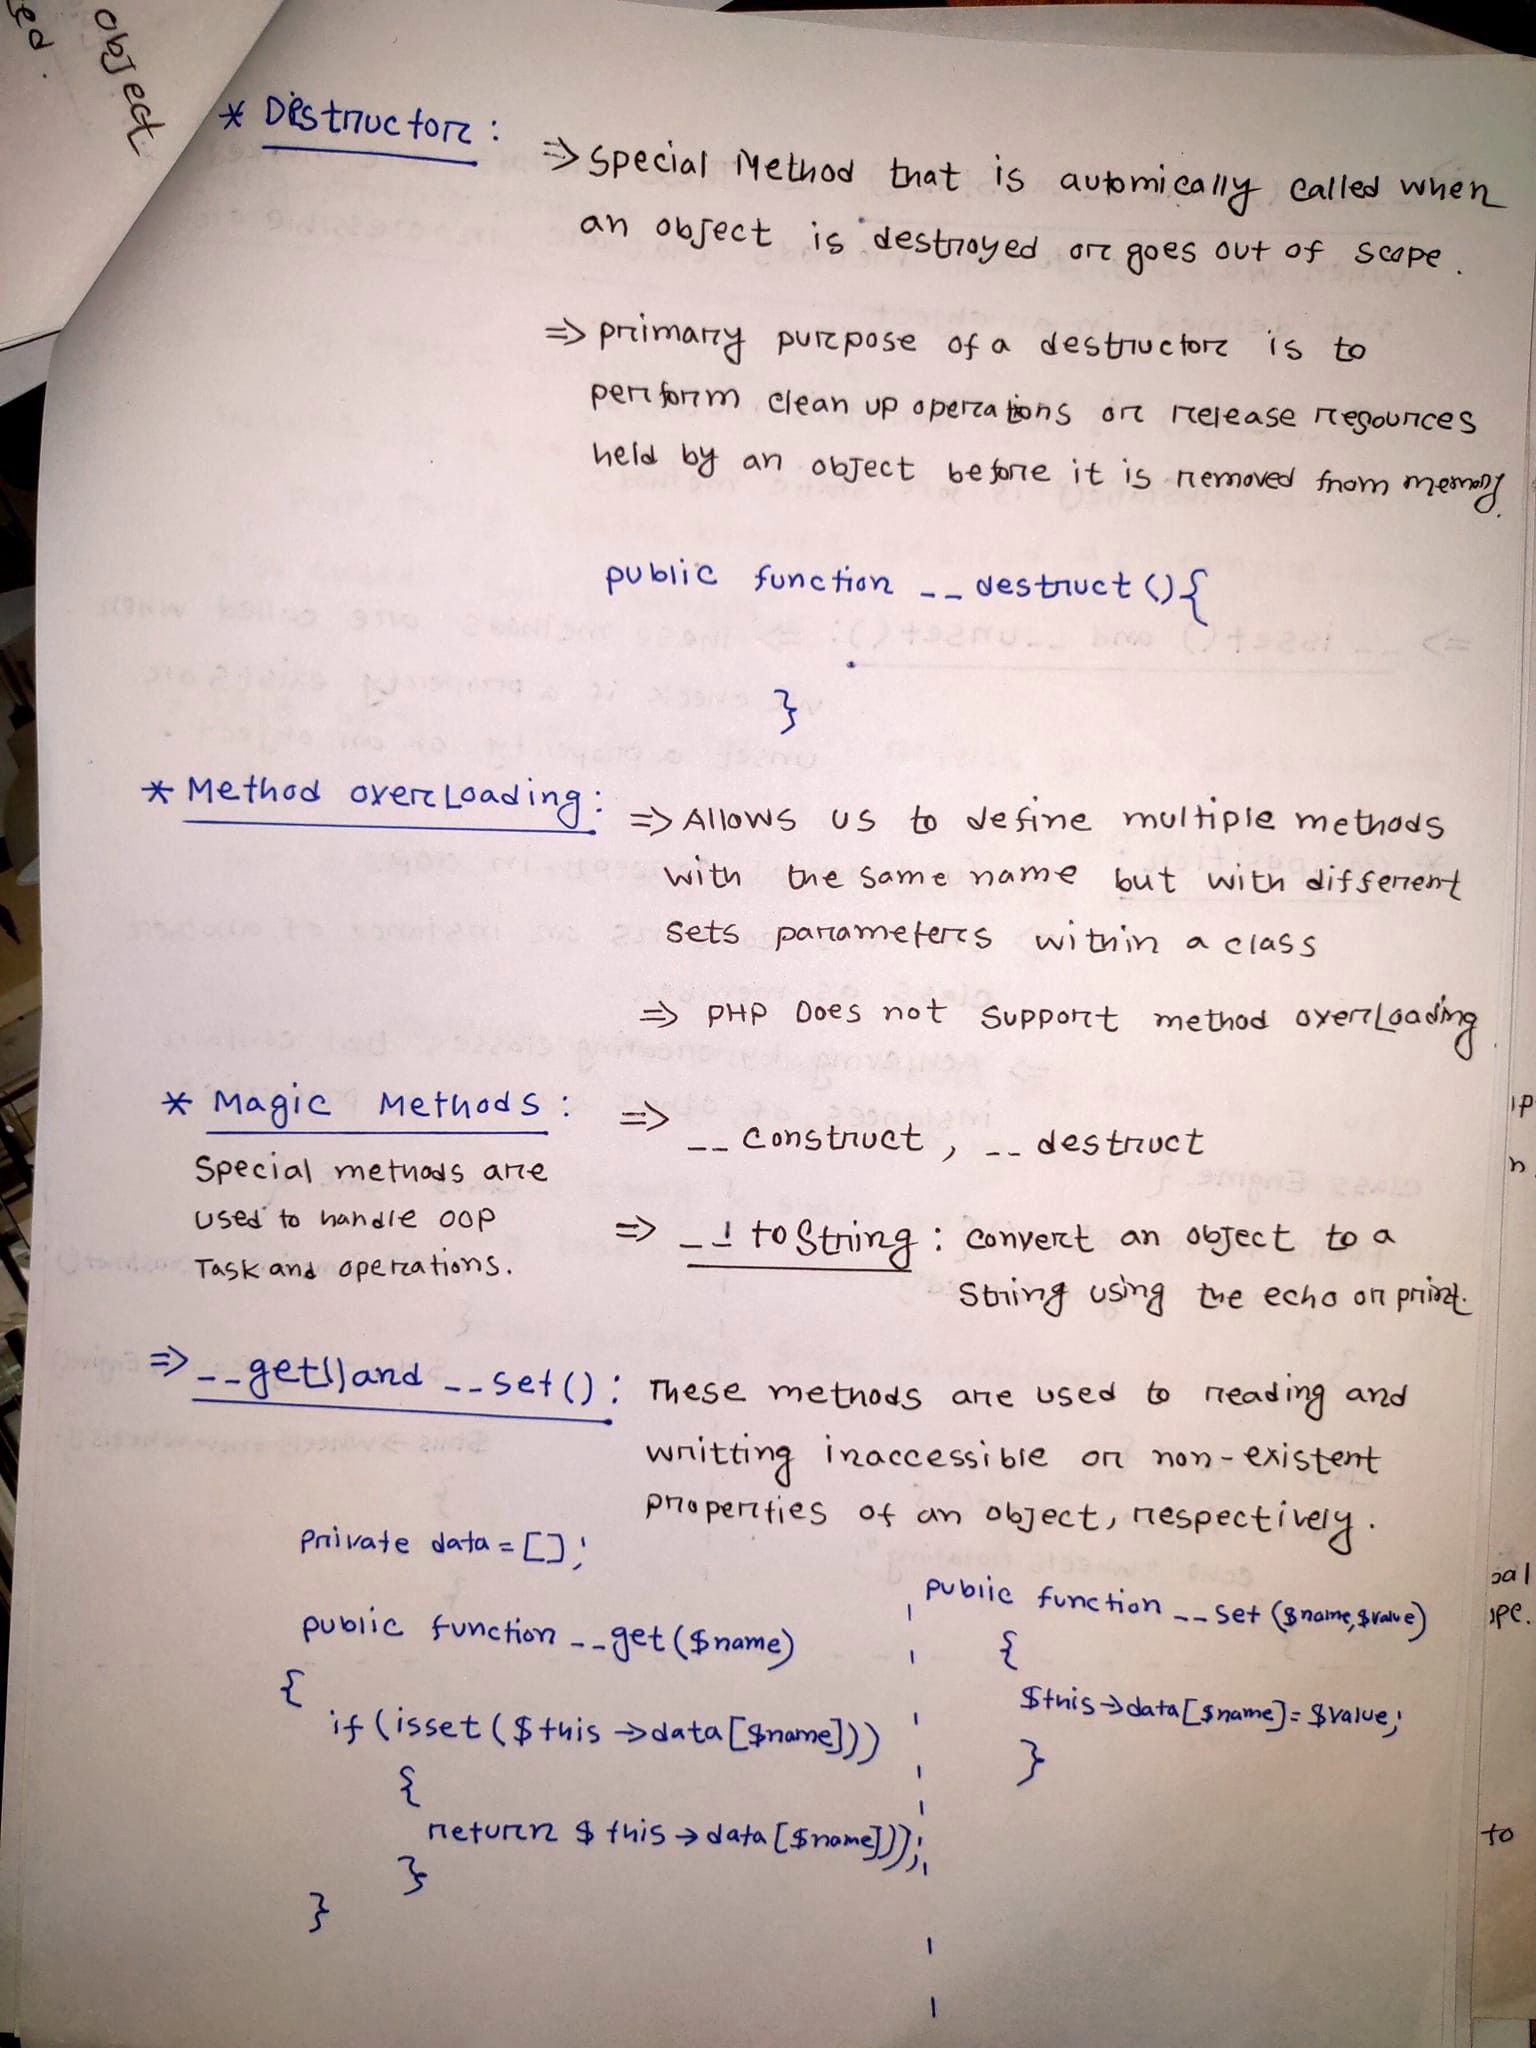 object
ed.
* Destructor :
=> Special Method that is automically called when
an object is destroyed or goes out of scope.
=> primary purpose of a destructor is to
perform clean up operations or release resources
held by an object before it is removed from memory.
public function __destruct(){
}
* Method overLoading :
=> Allows us to define multiple methods
with the same name but with different
sets parameters within a class
=> PHP Does not support method overLoading.
* Magic Methods :
Special methods are
used to handle OOP
Task and operations.
=> __construct, __destruct
=> __toString : convert an object to a
string using the echo or print.
=> __get() and __set() : These methods are used to reading and
writting inaccessible or non-existent
properties of an object, respectively.
private data = [];
public function __get($name)
{
if (isset ($this->data[$name]))
{
return $this->data[$name]));
}
}
public function __set($name,$value)
{
$this->data[$name]=$value;
}
ip
n
pe.
to